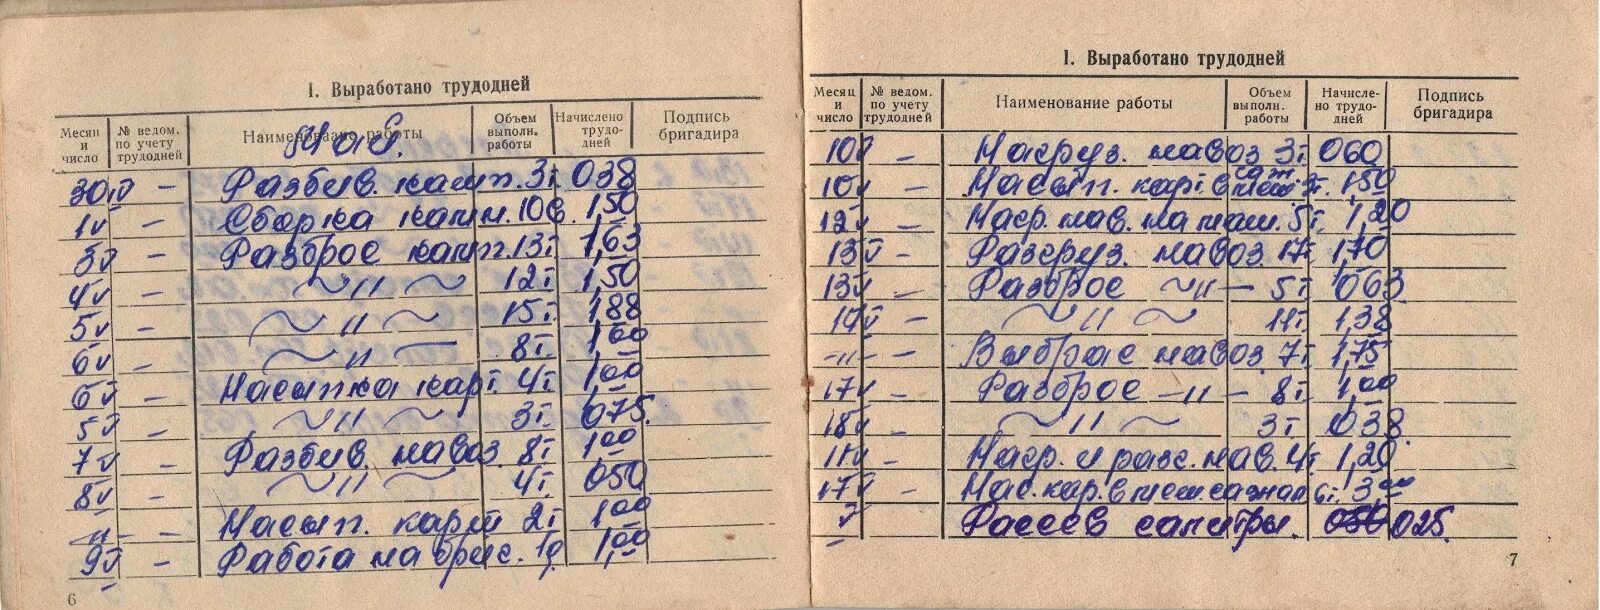 I. Выработано трудодней
Месяц и число № ведом. по учету трудодней Наименование работы Объем выполн. работы Начислено трудодней Подпись бригадира
30 IV – Разбив. 3т 038
1 V – Сборка 1,50
3 V – Разброс 13т 1,63
4 V – ~ıı~ 12т 1,50
5 V – ~ıı~ 15т 1,88
6 V – ~ıı~ 8т. 1,00
6 V – Насыпка карт. 4т 1,00
5 V – ~ıı~ 3т. 075.
7 V – Разбив. навоз. 8т. 1,00
8 V – ~ıı~ 4т. 050
–ıı– – Насып. карт 2т 1,00
9 V – Работа на 1,00
6
I. Выработано трудодней
Месяц и число № ведом. по учету трудодней Наименование работы Объем выполн. работы Начислено трудодней Подпись бригадира
10 V – Нагруз. навоз 3т 060
10 V – Насып. карт в 1,50
12 V – Нагр. нав. на маш. 5т. 1,20
13 V – Разгруз. навоз. 17т 1,70
13 V – Разброс ~ıı– 5т 063
14 V – ~ıı~ 11т. 1,38
–ıı– – Выброс навоз. 7т 1,75
17 V – Разброс –ıı– 8т 1,00
18 V – ~ıı~ 3т. 038.
– Нагр. и разг. нав. 4т 1,20
17 V – Нас. кар. в 6т. 3,00
V Рассев селитры. 025.
7